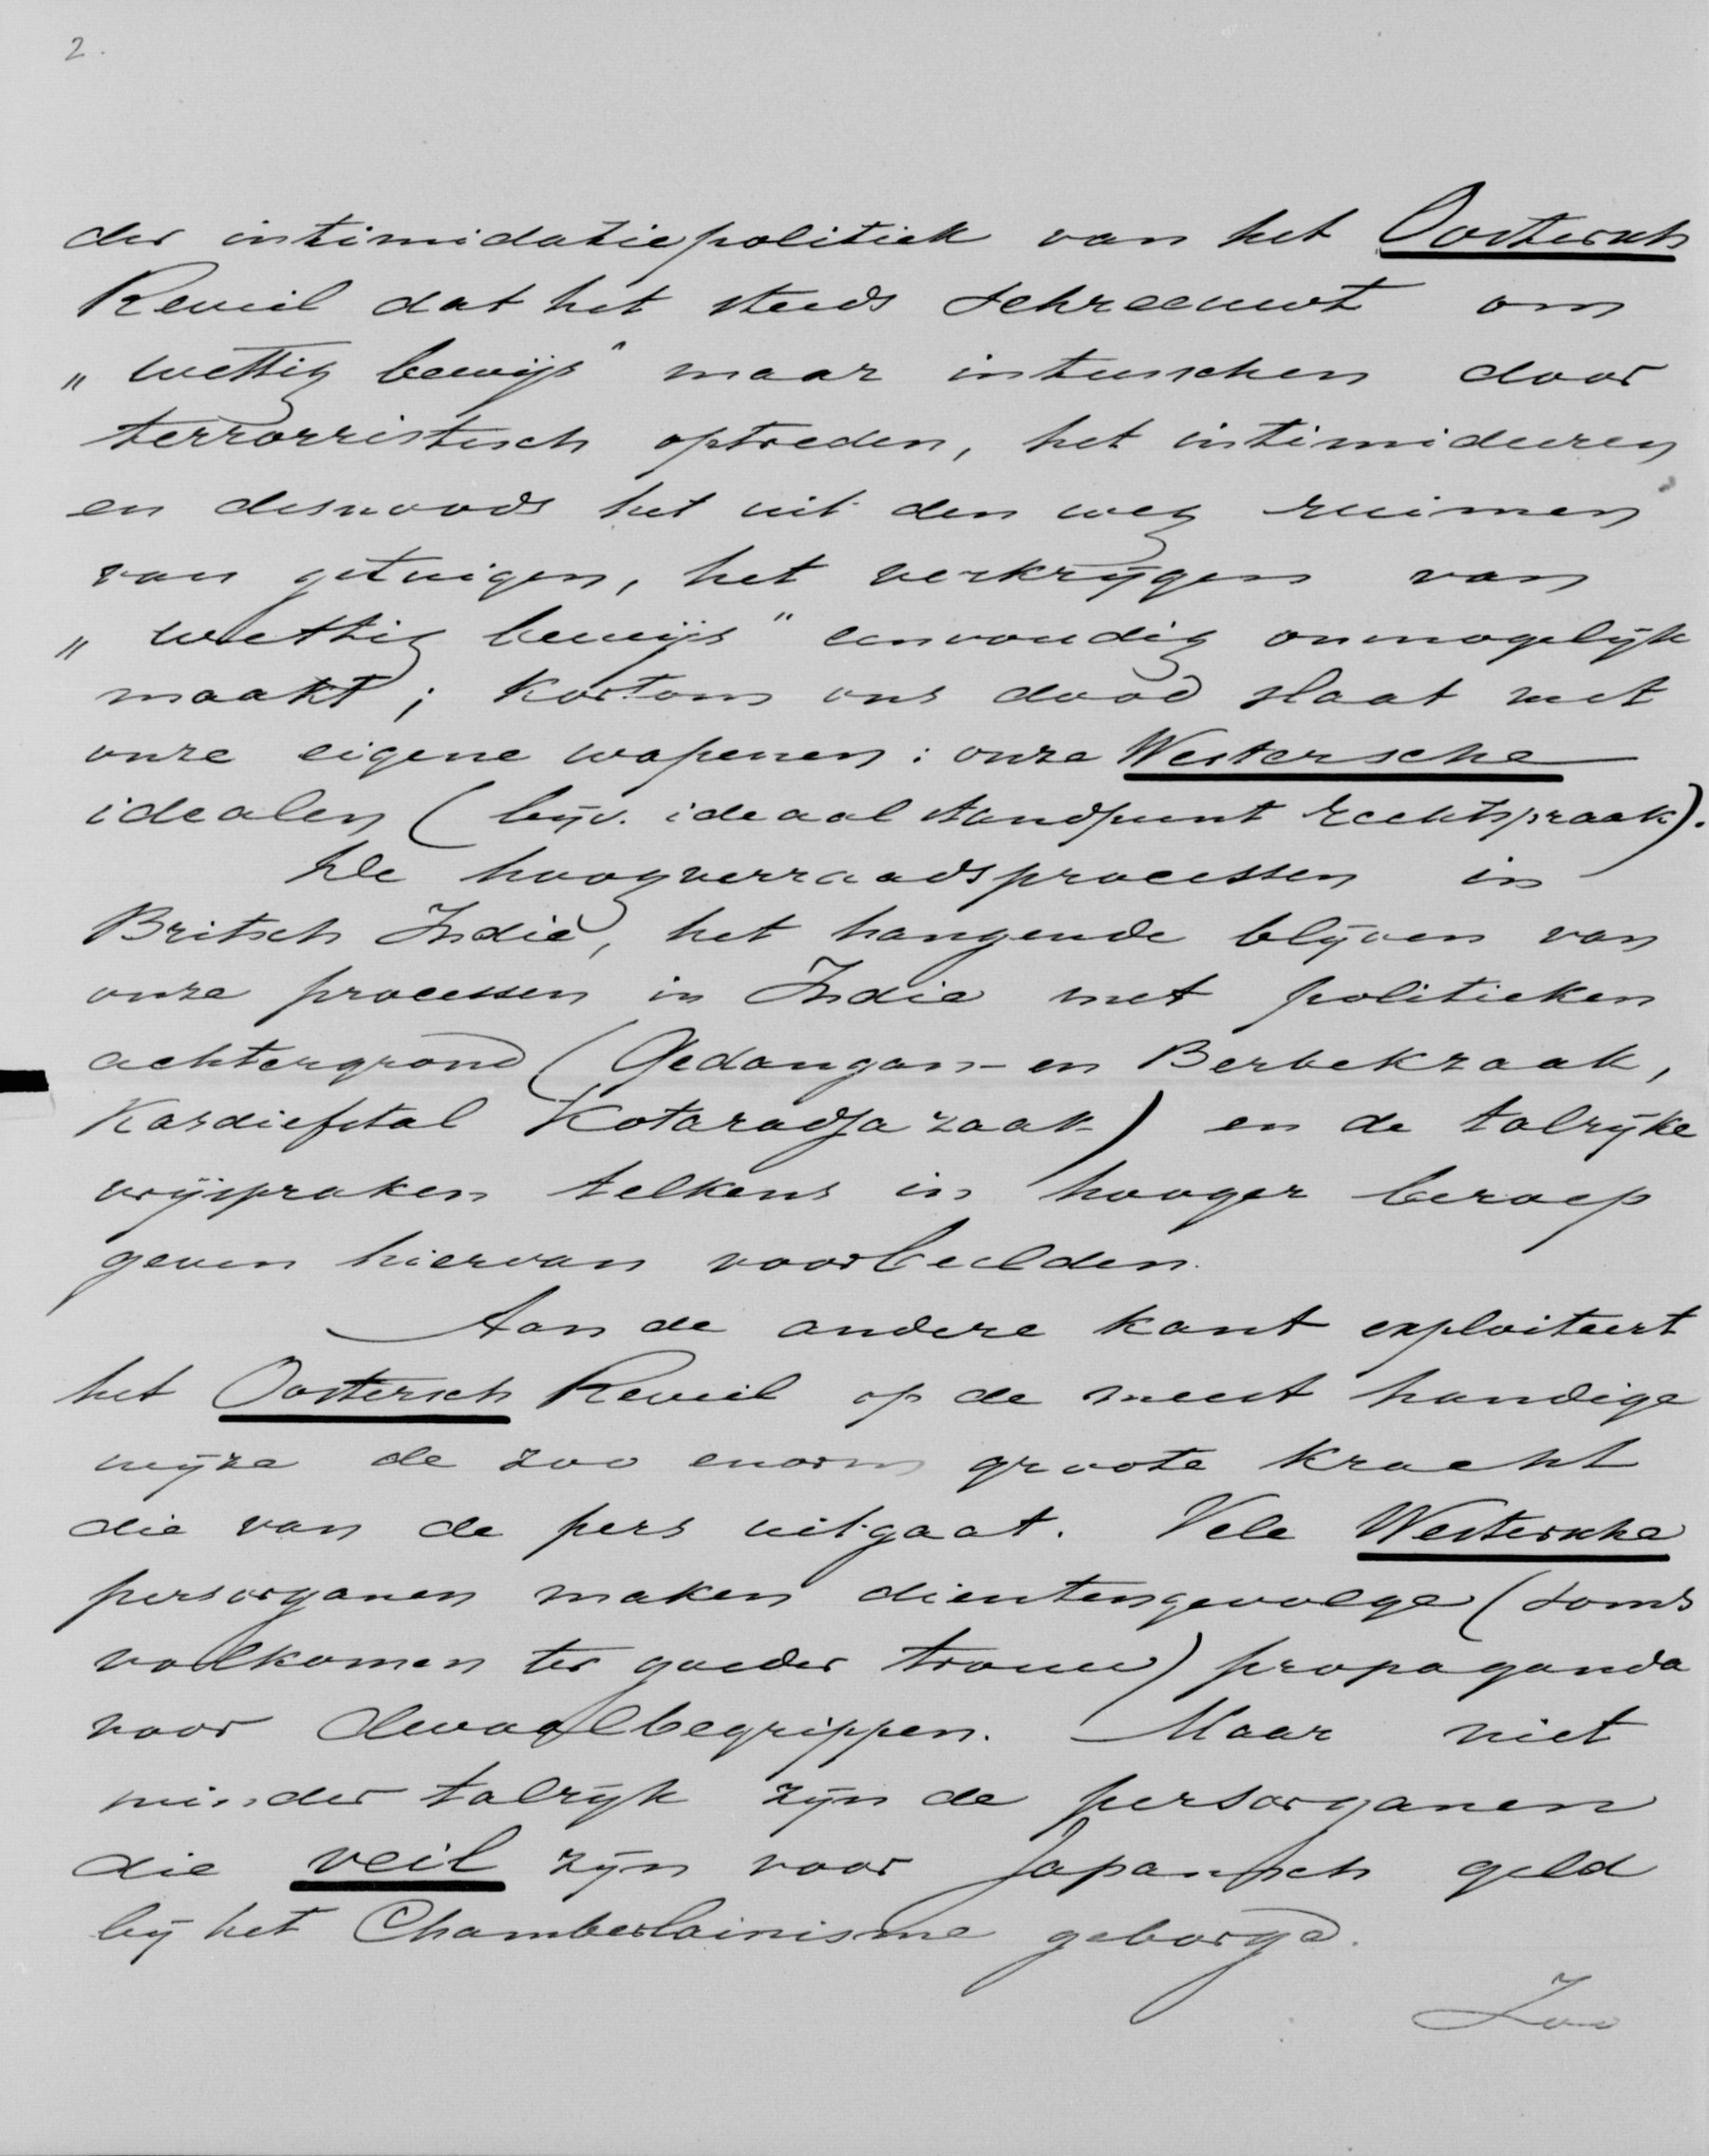 2.
der intimidatiepolitiek van het Oostersch
Reveil dat het steeds schreeuwt om
„wettig bewijs" maar intusschen door
terrorristisch optreden, het intimideeren
en desnoods het uit den weg ruimen
van getuigen, het verkrijgen van
„wettig bewijs" eenvoudig onmogelijk
maakt; kortom ons dood slaat met
onze eigene wapenen: onze Westersche
idealen (bijv. ideaal standpunt rechtspraak).
De hoogverraadsprocessen in
Britsch Indië, het hangende blijven van
onze processen in Indië met politieken
achtergrond (Gedangan- en Berbekzaak,
Kasdiefstal Kotaradja zaak) en de talrijke
vrijspraken telkens in hooger beroep
geven hiervan voorbeelden.
Aan de andere kant exploiteert
het Oostersch Reveil op de meest handige
wijze de zoo enorm groote kracht
die van de pers uitgaat. Vele Westersche
persorganen maken dientengevolge (soms
volkomen ter goeder trouw) propaganda
voor dwaalbegrippen. Maar niet
minder talrijk zijn de persorganen
die veil zijn voor Japansch geld
bij het Chamberlainisme geborgd.
Zoo